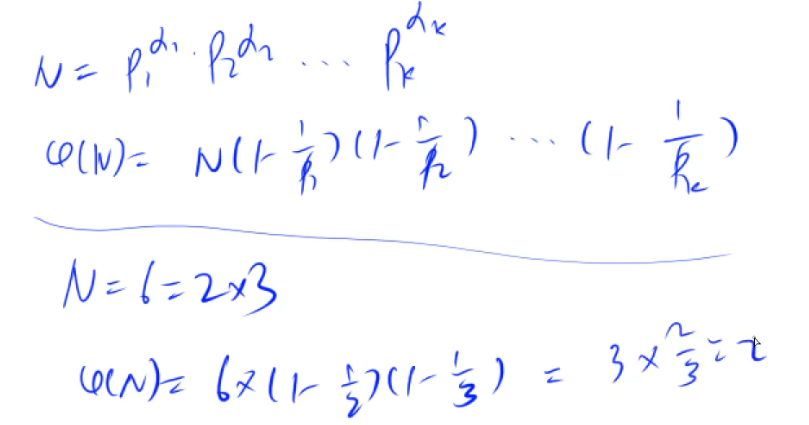 N = p₁^α₁ · p₂^α₂ ... pₖ^αₖ
φ(N) = N(1 - 1/p₁)(1 - 1/p₂) ... (1 - 1/pₖ)
N = 6 = 2×3
φ(N) = 6×(1 - 1/2)(1 - 1/3) = 3 × 2/3 = 2